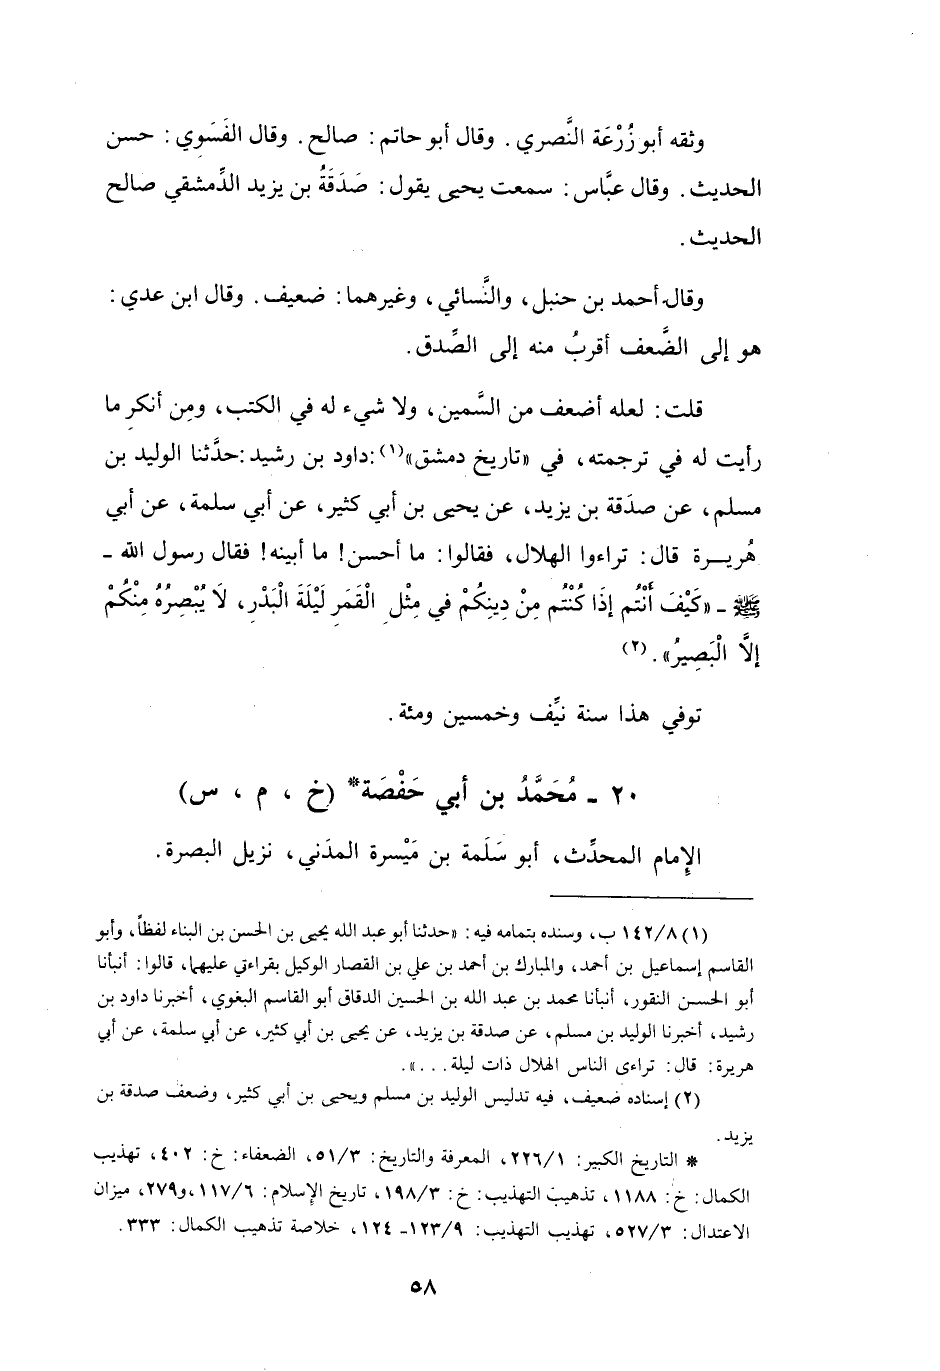 وثقه أبو زُرْعَة النَّصري . وقال أبو حاتم : صالح . وقال الفَسَوي : حسن
الحديث . وقال عبَّاس : سمعت يحيى يقول : صَدَقَةُ بن يزيد الدِّمشقي صالح
الحديث .
وقال أحمد بن حنبل ، والنَّسائي ، وغيرهما : ضعيف . وقال ابن عدي :
هو إلى الضَّعف أقربُ منه إلى الصِّدق .
قلت : لعله أضعف من السَّمين ، ولا شيء له في الكتب ، ومِن أنكر ما
رأيت له في ترجمته ، في «تاريخ دمشق»(١) : داود بن رشيد : حدَّثنا الوليد بن
مسلم ، عن صدَقة بن يزيد ، عن يحيى بن أبي كثير ، عن أبي سلمة ، عن أبي
هُريرة قال : تراءوا الهلال ، فقالوا : ما أحسن! ما أبينه! فقال رسول الله -
ﷺ - «كَيْفَ أَنْتُم إذَا كُنْتُم مِنْ دِينِكُمْ في مِثْلِ الْقَمَرِ لَيْلَةَ الْبَدْرِ ، لَا يُبْصِرُهُ مِنْكُمْ
إلَّا الْبَصِيرُ» . (٢)
توفي هذا سنة نيِّف وخمسين ومئة .
٢٠ - مُحَمَّدُ بن أبي حَفْصَة* (خ ، م ، س)
الإمام المحدِّث ، أبو سَلَمة بن مَيْسرة المدَني ، نزيل البصرة .
(١) ١٤٢/٨ ب ، وسنده بتمامه فيه : «حدثنا أبو عبد الله يحيى بن الحسن بن البناء لفظاً ، وأبو
القاسم إسماعيل بن أحمد ، والمبارك بن أحمد بن علي بن القصار الوكيل بقراءتي عليهما ، قالوا : أنبأنا
أبو الحسن النقور ، أنبأنا محمد بن عبد الله بن الحسين الدقاق أبو القاسم البغوي ، أخبرنا داود بن
رشيد ، أخبرنا الوليد بن مسلم ، عن صدقة بن يزيد ، عن يحيى بن أبي كثير ، عن أبي سلمة ، عن أبي
هريرة : قال : تراءى الناس الهلال ذات ليلة . . . » .
(٢) إسناده ضعيف ، فيه تدليس الوليد بن مسلم ويحيى بن أبي كثير ، وضعف صدقة بن
يزيد .
* التاريخ الكبير : ٢٢٦/١ ، المعرفة والتاريخ : ٥١/٣ ، الضعفاء : خ : ٤٠٢ ، تهذيب
الكمال : خ : ١١٨٨ ، تذهيب التهذيب : خ : ١٩٨/٣ ، تاريخ الإسلام : ١١٧/٦ ، و٢٧٩ ، ميزان
الاعتدال : ٥٢٧/٣ ، تهذيب التهذيب : ١٢٣/٩ - ١٢٤ ، خلاصة تذهيب الكمال : ٣٣٣ .
٥٨